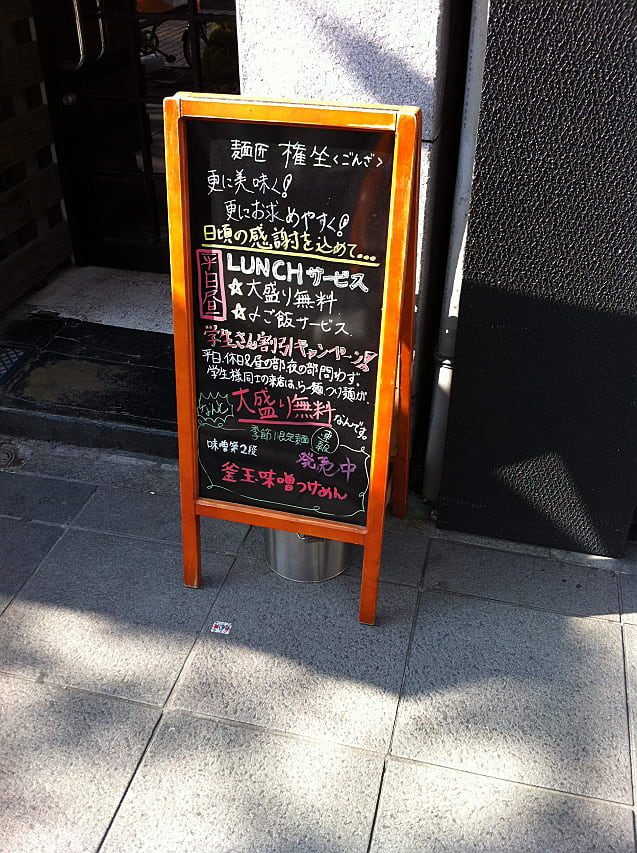 麺匠 権坐〈ごんざ〉
更に美味く!
更にお求めやすく!
日頃の感謝を込めて...
平日昼
LUNCHサービス
☆大盛り無料
☆よご飯サービス
学生さん割引キャンペーン!
平日、休日&昼の部、夜の部問わず。
学生様同士の来店は、らー麺、つけ麺が、
なんと
大盛り無料なんです。
季節限定麺
速報
味噌第2段
発売中
釜玉味噌つけめん